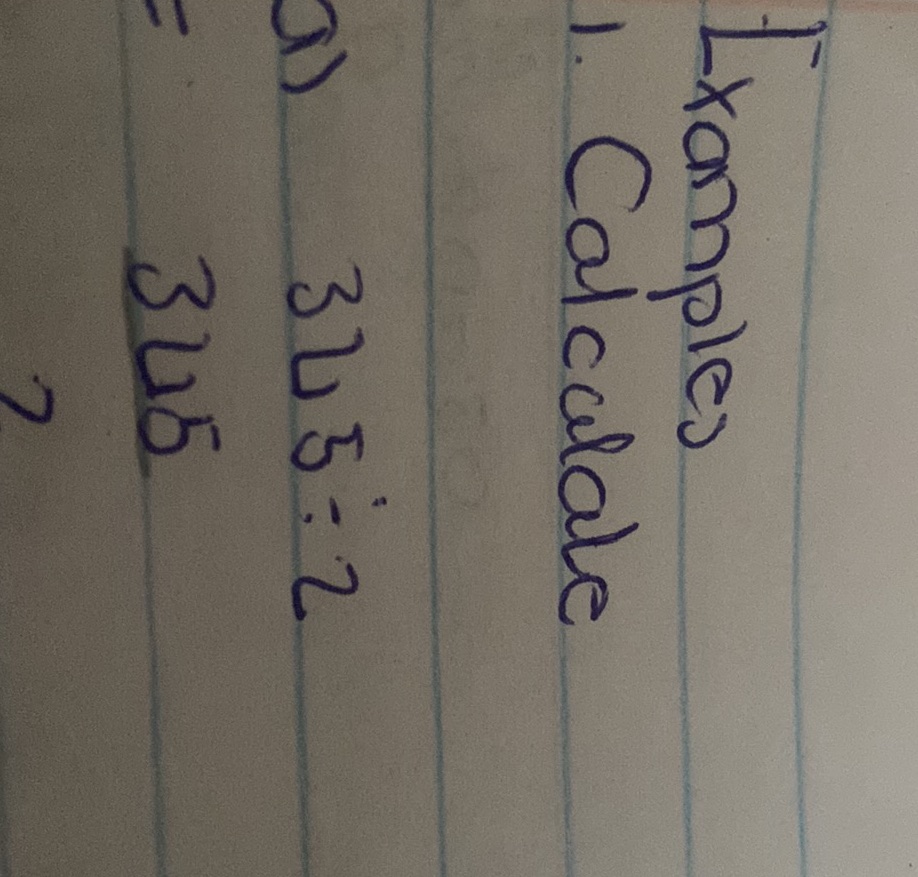 Examples
1. Calculate
a) 345 ÷ 2
= 345
2